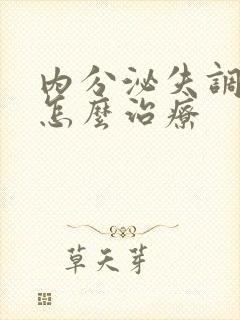 內分泌失調
怎麼治療
草天芽